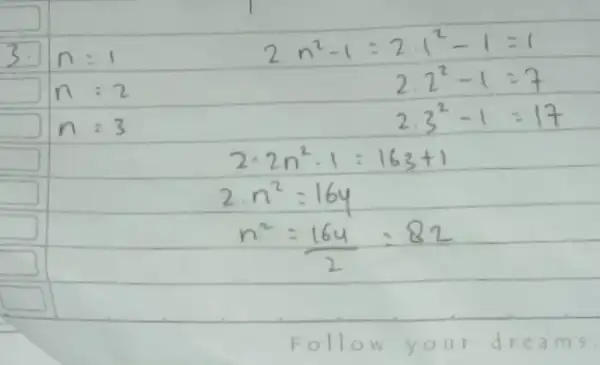 3. n = 1 2 n² - 1 = 2.1² - 1 = 1
n = 2 2.2² - 1 = 7
n = 3 2.3² - 1 = 17
2.2n².1 = 163+1
2.n² = 164
n² = 164/2 = 82
Follow your dreams.